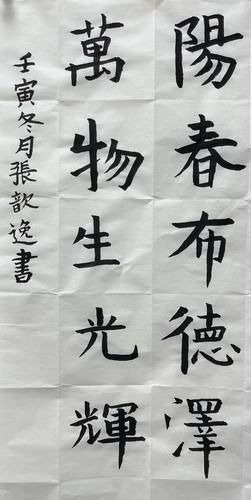 陽春布德澤
萬物生光輝
壬寅冬月張歆逸書